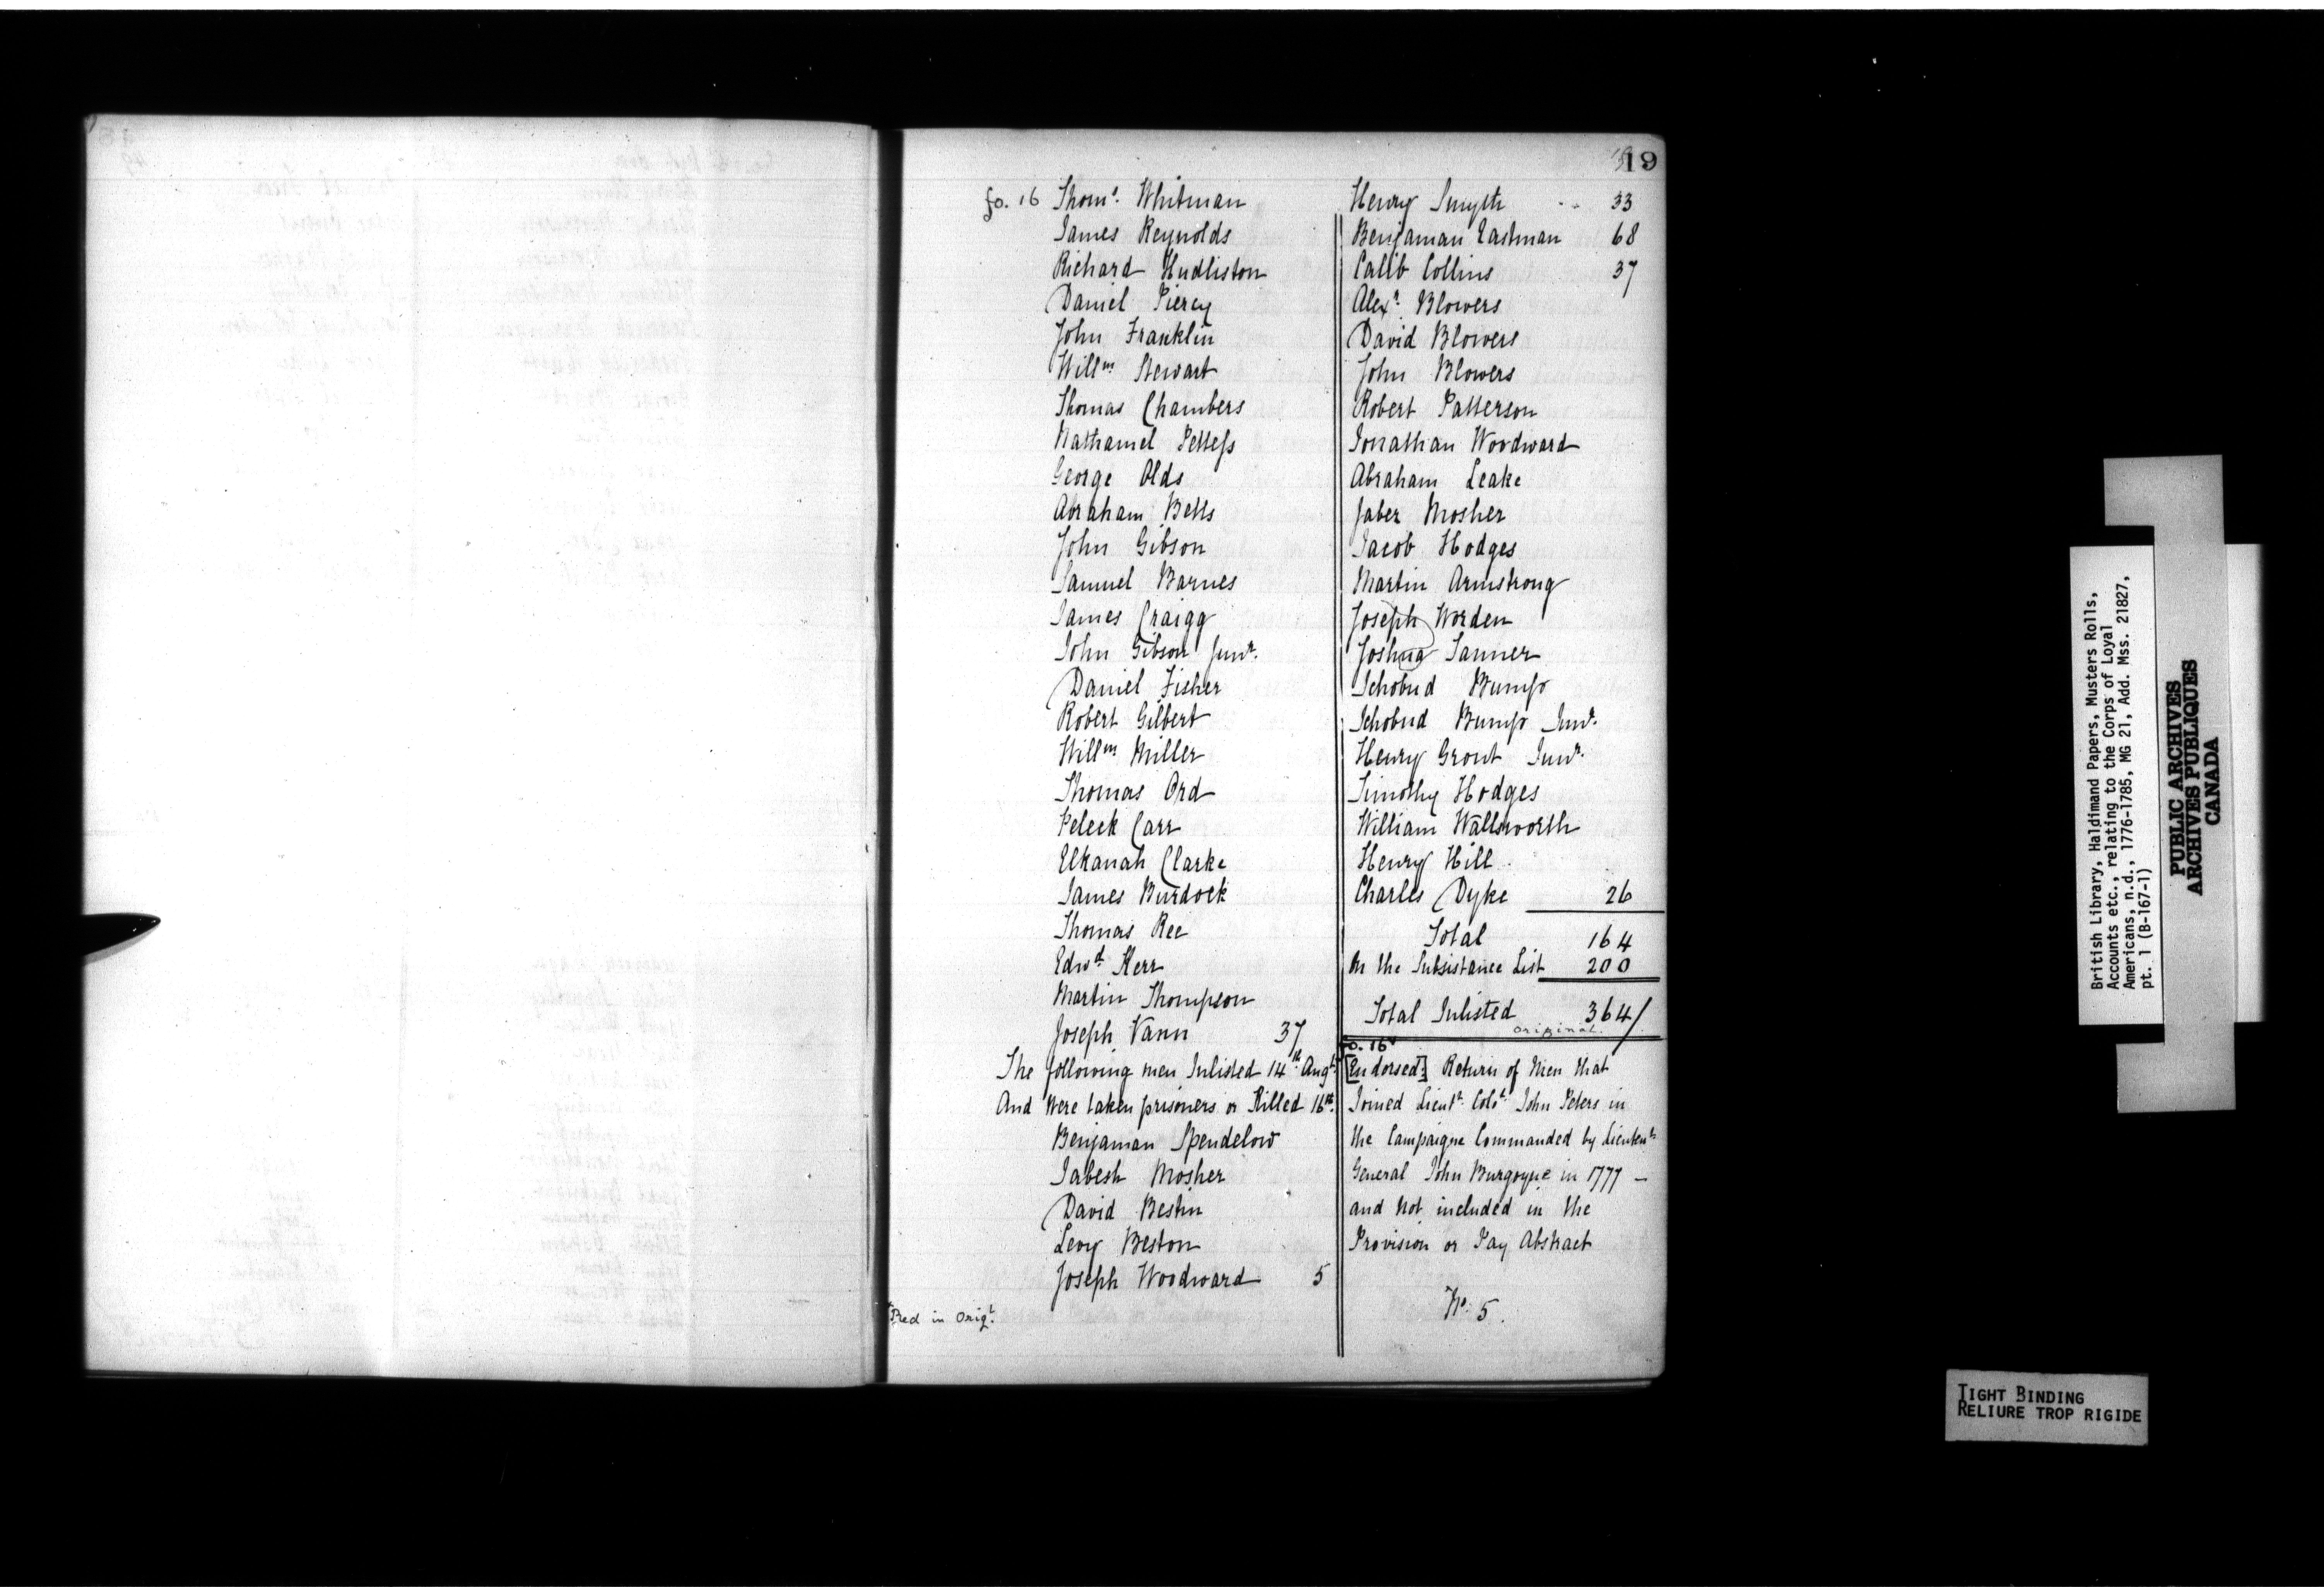 19
fo. 16 Thoms. Whitman
James Reynolds
Richard Hudliston
Daniel Piercy
John Franklin
Willm Stewart
Thomas Chambers
Nathaniel Pettess
George Olds
Abraham Betts
John Gibson
Samuel Barnes
James Craigg
John Gibson Junr.
Daniel Fisher
Robert Gilbert
Willm Miller
Thomas Ord
Peleek Carr
Elkanah Clarke
James Burdock
Thomas Ree
Edwd Kerr
Martin Thompson
Joseph Vann 37
The following men Inlisted 14th Augt.
And Were taken prisoners or Killed 16th.
Benjaman Spendelow
Jabesh Mosher
David Bestin
Levy Beston
Joseph Woodward 5
Red in Origl.
Henry Smyth .. 33
Benjaman Eastman 68
Calib Collins 37
Alexr. Blowers
David Blowers
John Blowers
Robert Patterson
Jonathan Woodward
Abraham Leake
Jaber Mosher
Jacob Hodges
Martin Armstrong
Joseph Worden
Joshua Tanner
Ichobud Bump
Ichobud Bump Junr.
Henry Grout Junr.
Timothy Hodges
William Wallsworth
Henry Hill
Charles Dyke 26
Total 164
On the Subsistance List 200
Total Inlisted 364/
original.
fo. 16v
[Endorsed:] Return of Men that
Joined Lieutt. Colo. John Peters in
the Campaigne Commanded by Lieutent
General John Burgoyne in 1777 —
and Not included in the
Provision or Pay Abstract
No. 5.
British Library, Haldimand Papers, Musters Rolls,
Accounts etc., relating to the Corps of Loyal
Americans, n.d., 1776-1785, MG 21, Add. Mss. 21827,
pt. 1 (B-167-1)
PUBLIC ARCHIVES
ARCHIVES PUBLIQUES
CANADA
TIGHT BINDING
RELIURE TROP RIGIDE